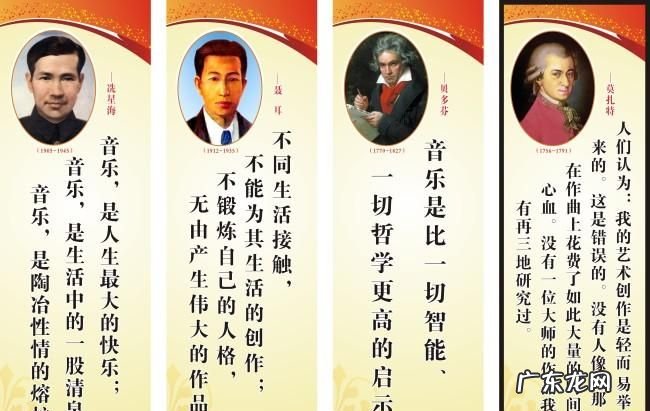 ——冼星海
(1905-1945)
音乐，是人生最大的快乐；
音乐，是生活中的一股清泉
音乐，是陶冶性情的熔
——聂 耳
(1912-1935)
不同生活接触，
不能为其生活的创作；
不锻炼自己的人格，
无由产生伟大的作品
——贝多芬
(1770-1827)
音乐是比一切智能、
一切哲学更高的启示
——莫扎特
(1756-1791)
人们认为：我的艺术创作是轻而易举
来的。这是错误的。没有人像 那
在作曲上花费了如此大量的 间
心血。没有一位大师的作 我
有再三地研究过。
广东龙网